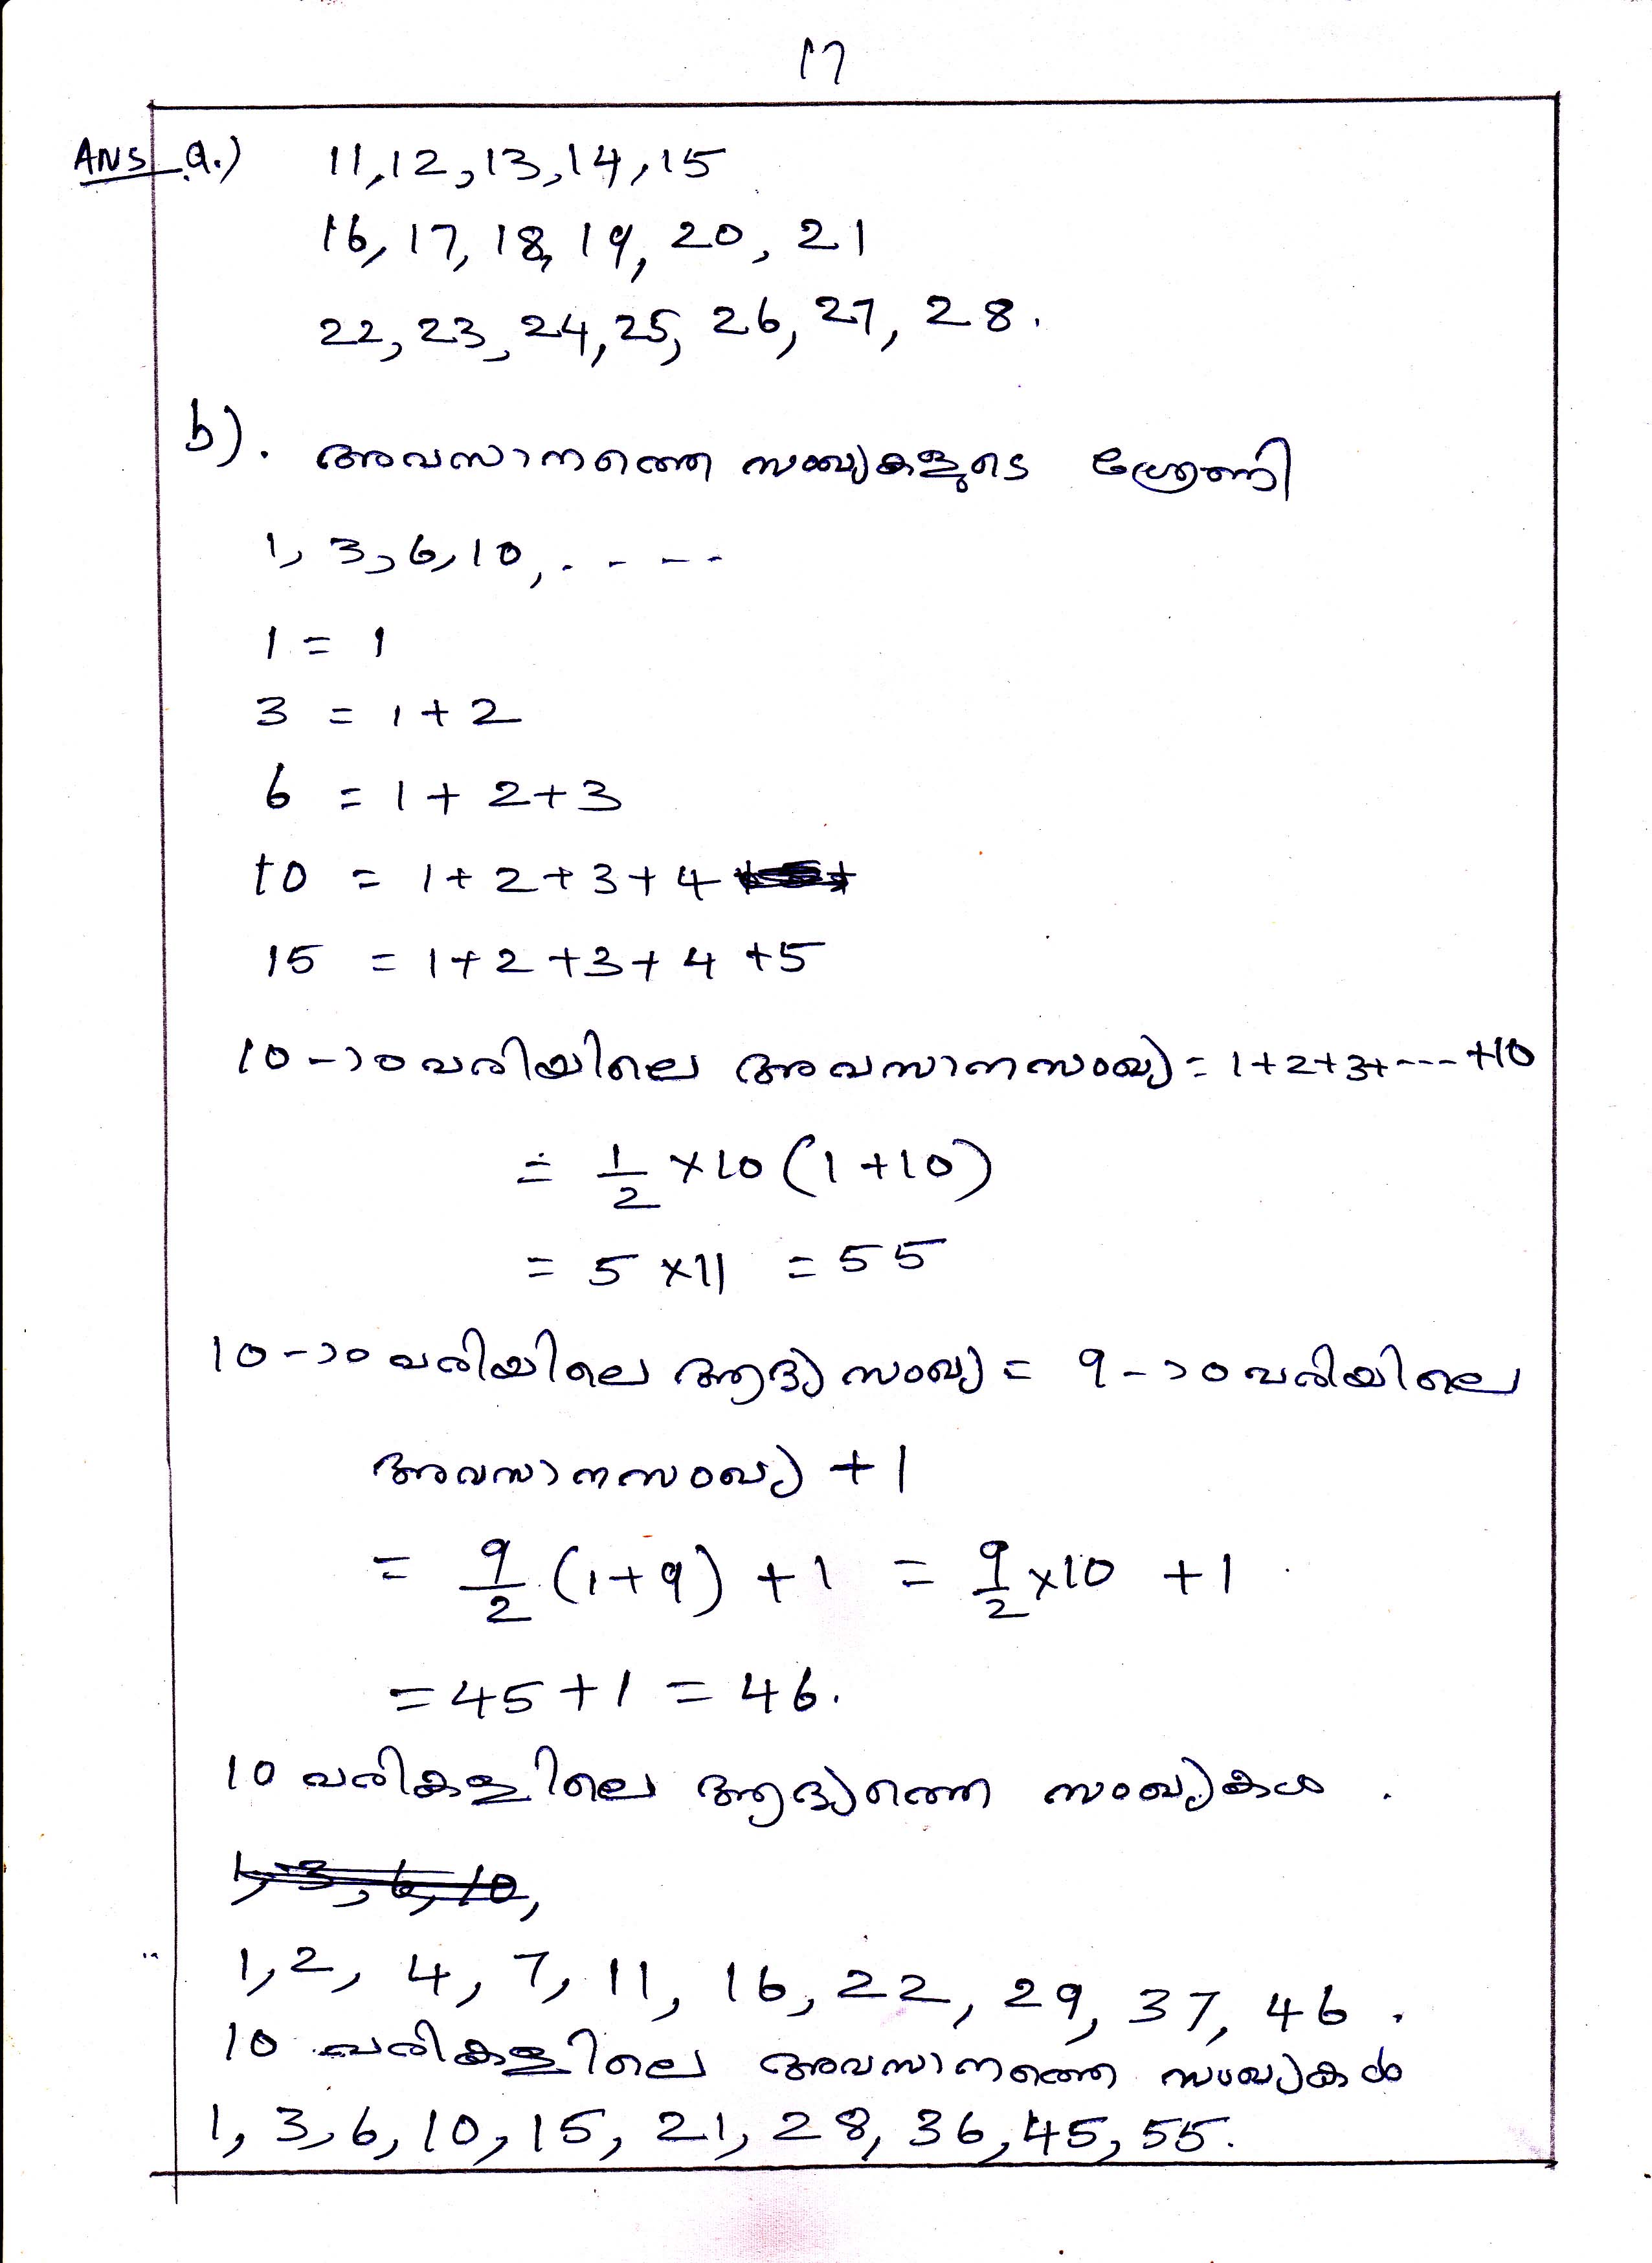 17
ANS a.) 11, 12, 13, 14, 15
16, 17, 18, 19, 20, 21
22, 23, 24, 25, 26, 27, 28.
b). അവസാനത്തെ സംഖ്യകളുടെ ശ്രേണി
1, 3, 6, 10, . - - - -
1 = 1
3 = 1+2
6 = 1+2+3
10 = 1+2+3+4
15 = 1+2+3+4+5
10-ാം വരിയിലെ അവസാനസംഖ്യ = 1+2+3+---+10
= 1/2 × 10 (1+10)
= 5 × 11 = 55
10-ാം വരിയിലെ ആദ്യ സംഖ്യ = 9-ാം വരിയിലെ
അവസാനസംഖ്യ + 1
= 9/2 (1+9) + 1 = 9/2 × 10 + 1
= 45 + 1 = 46.
10 വരികളിലെ ആദ്യത്തെ സംഖ്യകൾ .
1, 3, 6, 10,
1, 2, 4, 7, 11, 16, 22, 29, 37, 46 .
10 വരികളിലെ അവസാനത്തെ സംഖ്യകൾ
1, 3, 6, 10, 15, 21, 28, 36, 45, 55.